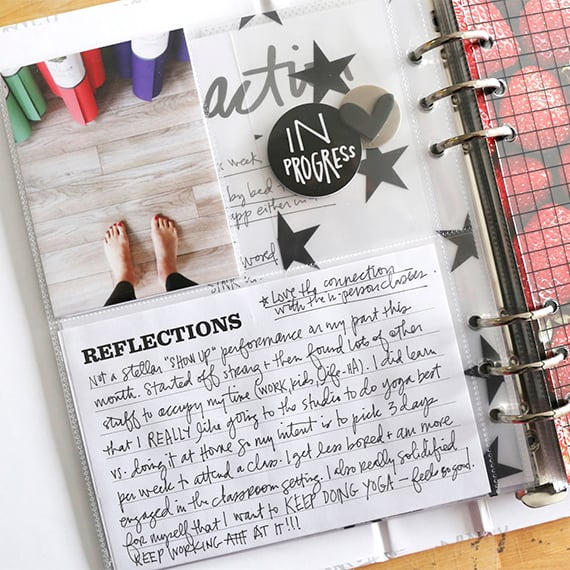 action
IN
PROGRESS
week
by bed +
app either in
word
SINK
★ Love the connection
with the in-person classes.
REFLECTIONS
Not a stellar "SHOW UP" performance on my part this
month. Started off strong + then found lots of other
stuff to occupy my time (WORK, KIDS, LIFE-HA). I did learn
that I REALLY like going to the studio to do yoga best
vs. doing it at Home so my intent is to pick 3 days
per week to attend a class. I get less bored + am more
engaged in the classroom setting. I also really solidified
for myself that I want to KEEP DOING YOGA - feels so good!
KEEP WORKING AT IT!!!